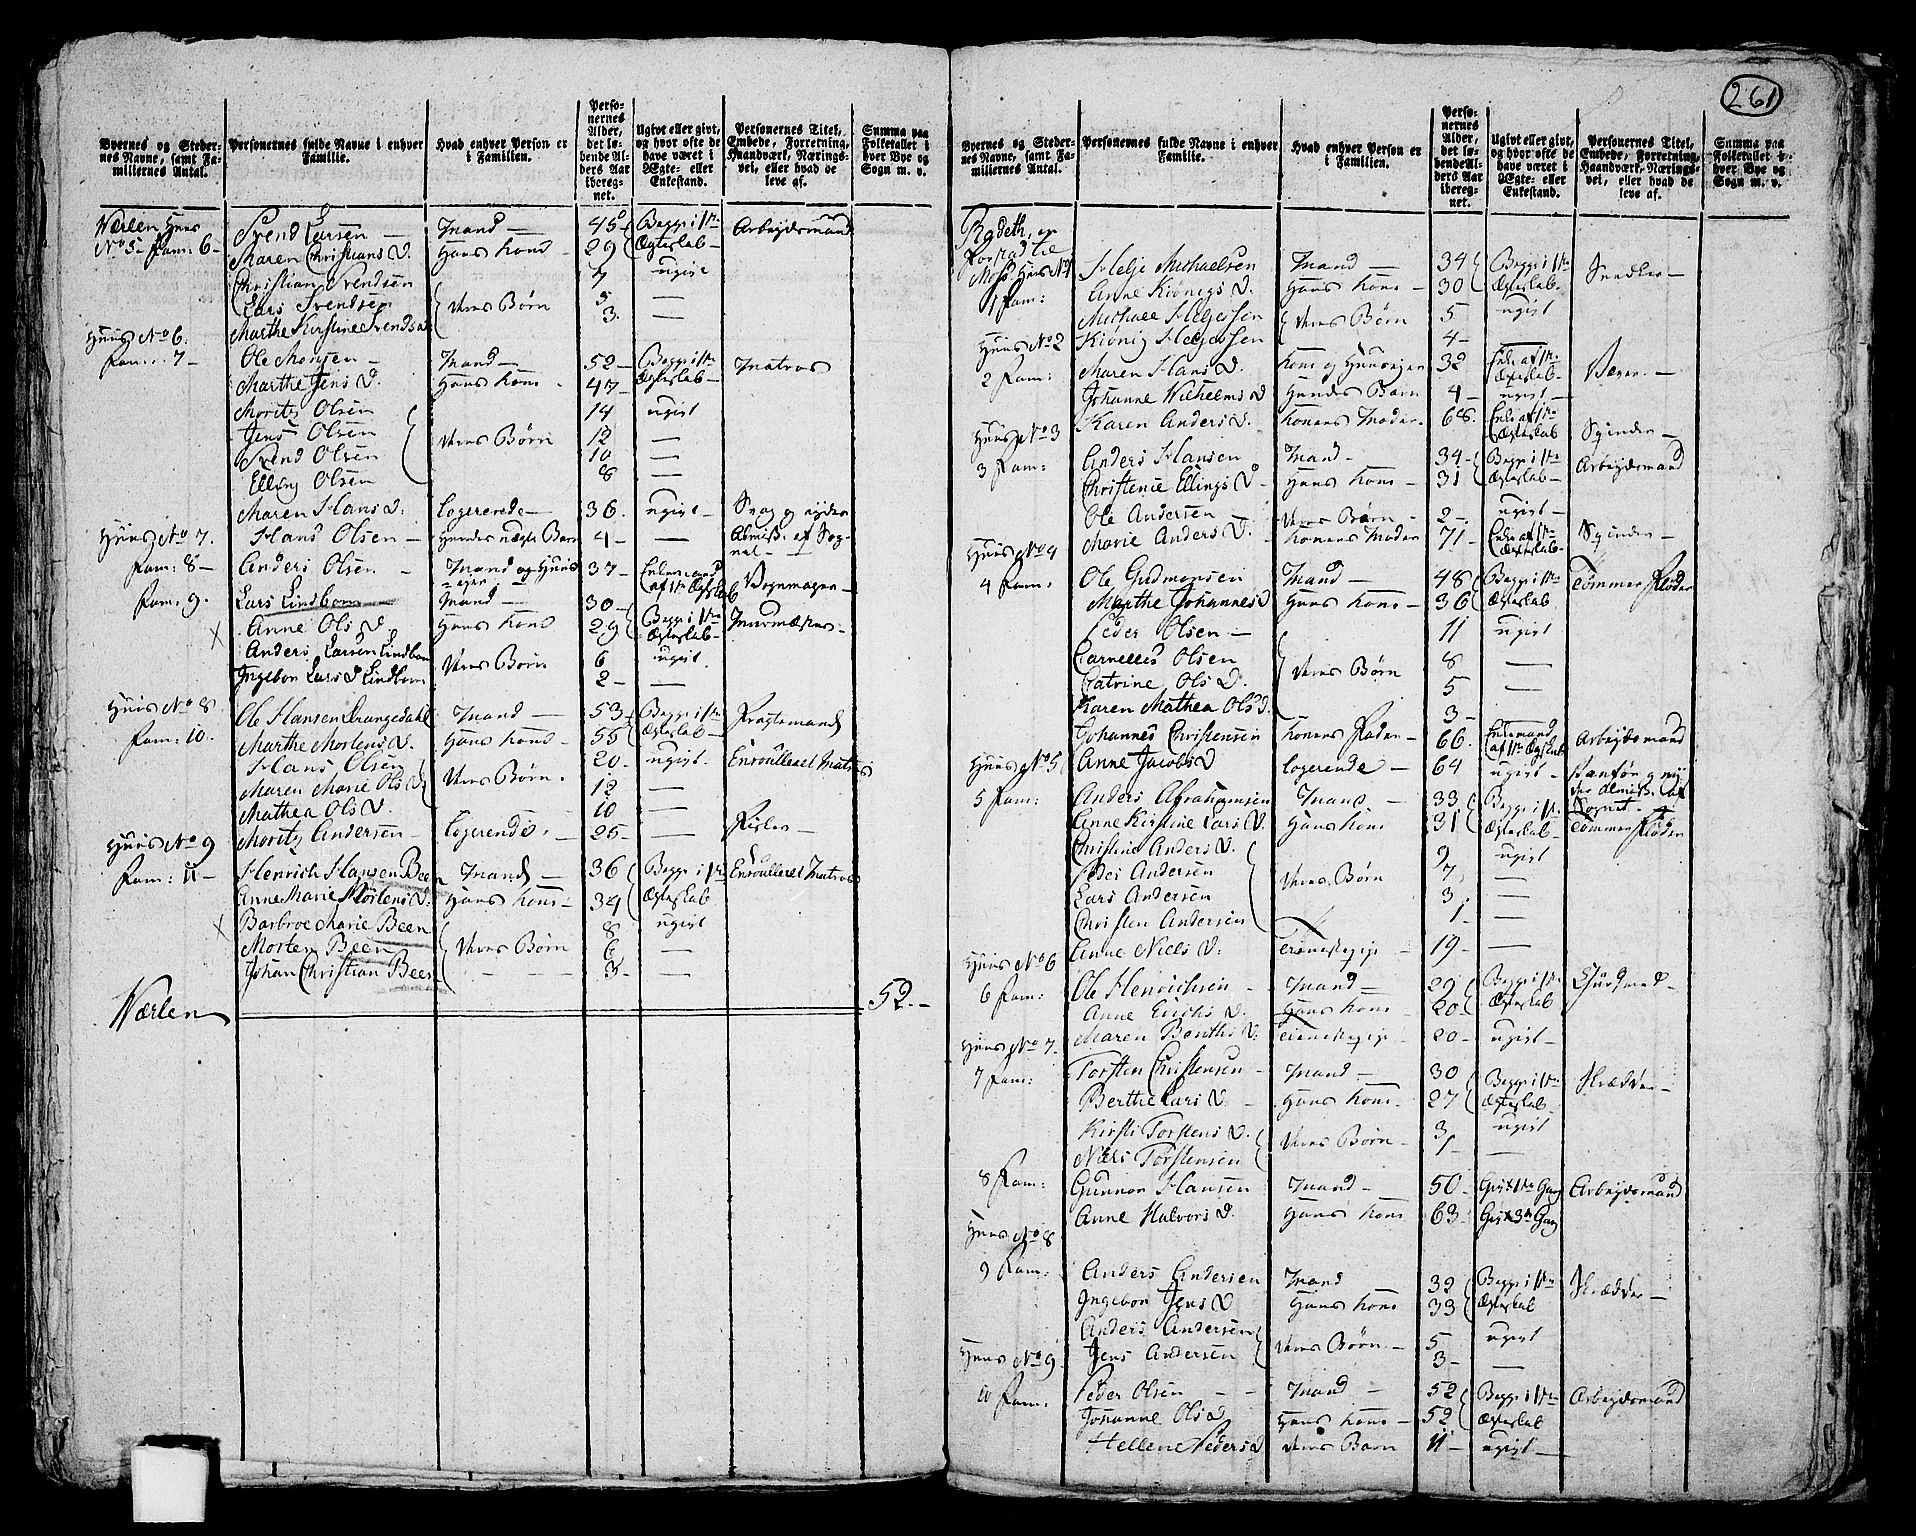 261
Byernes og Stedernes Navne, samt Familiernes Antal. | Personernes fulde Navne i enhver Familie. | Hvad enhver Person er i Familien. | Personernes Alder, det løbende Alders Aar iberegnet. | Ugivt eller givt, og hvor ofte de have været i Ægte- eller Enkestand. | Personernes Titel, Embede, Forretning, Haandværk, Næringsvei, eller hvad de leve af. | Summa paa Folketallet i hver Bye og Sogn m. v.
Værlen Huus | Svend Larsen — | Mand — | 45 | Begge i 1te | Arbeydsmand
No 5 Fam: 6 — | Maren Christians D. | Hans Kone | 29 | Ægteskab —
Christian Svendsen | 7 | ugivt
Lars Svendsen | Deres Børn | 5 | —
Marthe Kirstine Svends D | 3. | —
Huus No 6.
Fam: 7 — | Ole Monsen — | Mand — | 52 — | Begge i 1te | Matros
Marthe Jens D. | Hans Kone | 47 — | Ægteskab —
Moritz Olsen | 14 | ugivt
Jens Olsen | Deres Børn | 12 | —
Svend Olsen | 10 | —
Elling Olsen | 8 | —
Maren Hans D. | Logerende — | 36. | ugivt — | Svag og nyder
Huus No 7. | Hans Olsen — | Hendes uægte Barn | 4 — | — | Almisse af Sognet —
Fam: 8 — | Anders Olsen — | Mand og Huuseyer | 37 — | Enkemand af 1te Ægteskab | Vognmager
Fam: 9. | Lars Lindbom — | Mand — | 30 — | Begge i 1te | Muurmester —
X | Anne Ols D. | Hans Kone | 29 | Ægteskab —
Anders Larsen Lindbom | Deres Børn | 6 | ugivt.
Ingebor Lars D Lindbom | 2 — | —
Huus No 8 | Ole Hansen Drangedahl | Mand — | 53 — | Begge i 1te | Fragtemand
Fam: 10. | Marthe Mortens D. | Hans Kone | 55 | Ægteskab —
Hans Olsen | Deres Børn. | 20 — | ugivt. — | Enroulleret Matros
Maren Marie Ols D. | 12 | —
Mathea Ols D. | 10 | —
Huus No 9 | Moritz Andersen — | Logerende. | 25 — | — | Fisker —
Fam: 11 — | Henrich Hansen Been | Mand — | 36 | Begge i 1te | Enroulleret Matros
Anne Marie Mortens D. | Hans Kone — | 34 | Ægteskab
X | Barbroe Marie Been | Deres Børn | 8 | ugivt
Morten Been | 6 | —
Johan Christian Been | 3 — | —
Værlen | 52. —
Byernes og Stedernes Navne, samt Familiernes Antal. | Personernes fulde Navne i enhver Familie. | Hvad enhver Person er i Familien. | Personernes Alder, det løbende Alders Aar iberegnet. | Ugivt eller givt, og hvor ofte de have været i Ægte- eller Enkestand. | Personernes Titel, Embede, Forretning, Haandværk, Næringsvei, eller hvad de leve af. | Summa paa Folketallet i hver Bye og Sogn m. v.
Forstad til
Moss Huus No 1 | Helje Michaelsen | Mand — | 34 | Begge i 1te | Snedker —
1 Fam: | Anne Kionigs D. | Hans Kone — | 30 | Ægteskab —
Michael Helgessen | Deres Børn | 5 | ugivt
Huus No 2 | Kionig Helgessen | 4 — | —
2 Fam: | Maren Hans D. | Kone og Huuseyer | 32 | Enke af 1te Ægteskab — | Væver. —
Johanne Wilhelms D | Hendes Barn | 4 — | ugivt —
Huus No 3 | Karen Anders D. | Konens Moder. | 68. | Enke af 1te Ægteskab | Spinder —
3 Fam: | Anders Hansen | Mand — | 34 — | Begge i 1te | Arbeydsmand
Christense Ellings D. | Hans Kone — | 31 | Ægteskab —
Ole Andersen | Deres Børn — | 2 —. | ugivt —
Huus No 4 | Marie Anders D. | Konens Moder | 71 — | Enke af 1te Ægteskab — | Spinder —
4 Fam: | Ole Gudmonsen | Mand — | 48 | Begge i 1te | Tømmer Fløder
Marthe Johannes D | Hans Kone — | 36 | Ægteskab
Peder Olsen — | 11 | ugivt
Carnelles Olsen | Deres Børn | 8 | —
Catrine Ols D. | 5 | —
Karen Mathea Ols D. | 3 —
Johannes Christensen | Konens Fader — | 66. | Enkemand af 1te Ægteskab | Arbeydsmand
Huus No 5 | Anne Jacobs D | Logerende — | 64 | ugivt —
5 Fam: | Anders Abrahamsen | Mand — | 33 | Begge i 1te
Anne Kirstine Lars D. | Hans Kone | 31 | Ægteskab — | Tømmer Fløder
Christine Anders D. | Deres Børn | 9 | ugivt
Peder Andersen | 7 | —
Lars Andersen | 3 | —
Christen Andersen | 1 — | —
Huus No 6 | Anne Niels D. | Tienestepige | 19 — | —
6 Fam: | Ole Henrichsen — | Mand — | 29 | Begge i 1te
Anne Erichs D. | Hans Kone — | 20 | Ægteskab
Huus No 7. | Maren Benths D. | Tienestepige | 20 — | ugivt —
7 Fam: | Torsten Christensen — | Mand — | 30 | Begge i 1te | Skrædder —
Berthe Lars D. — | Hans Kone — | 27 | Ægteskab —
Kirsti Torstens D. | Deres Børn — | 3 | ugivt
Niels Torstensen | 1 — | —
8 Fam: | Gunnor Hansen | Mand — | 50 — | Givt 1te Gang | Arbeydsmand
Anne Halvors D. | Hans Kone | 63 — | Givt 3de Gang
Huus No 8
9 Fam: | Anders Andersen | Mand | 32 | Begge i 1te | Skrædder —
Ingebor Jens D | Hans Kone | 33 | Ægteskab
Anders Andersen | Deres Børn — | 5 | ugivt
Huus No 9 | Jens Andersen | 3 — | —
10 Fam: | Peder Olsen — — | Mand — | 52 | Begge i 1te | Arbeydsmand
Johanne Ols D | Hans Kone — | 52 | Ægteskab
Hellene Peders D | Deres Barn | 11 — | ugivt —